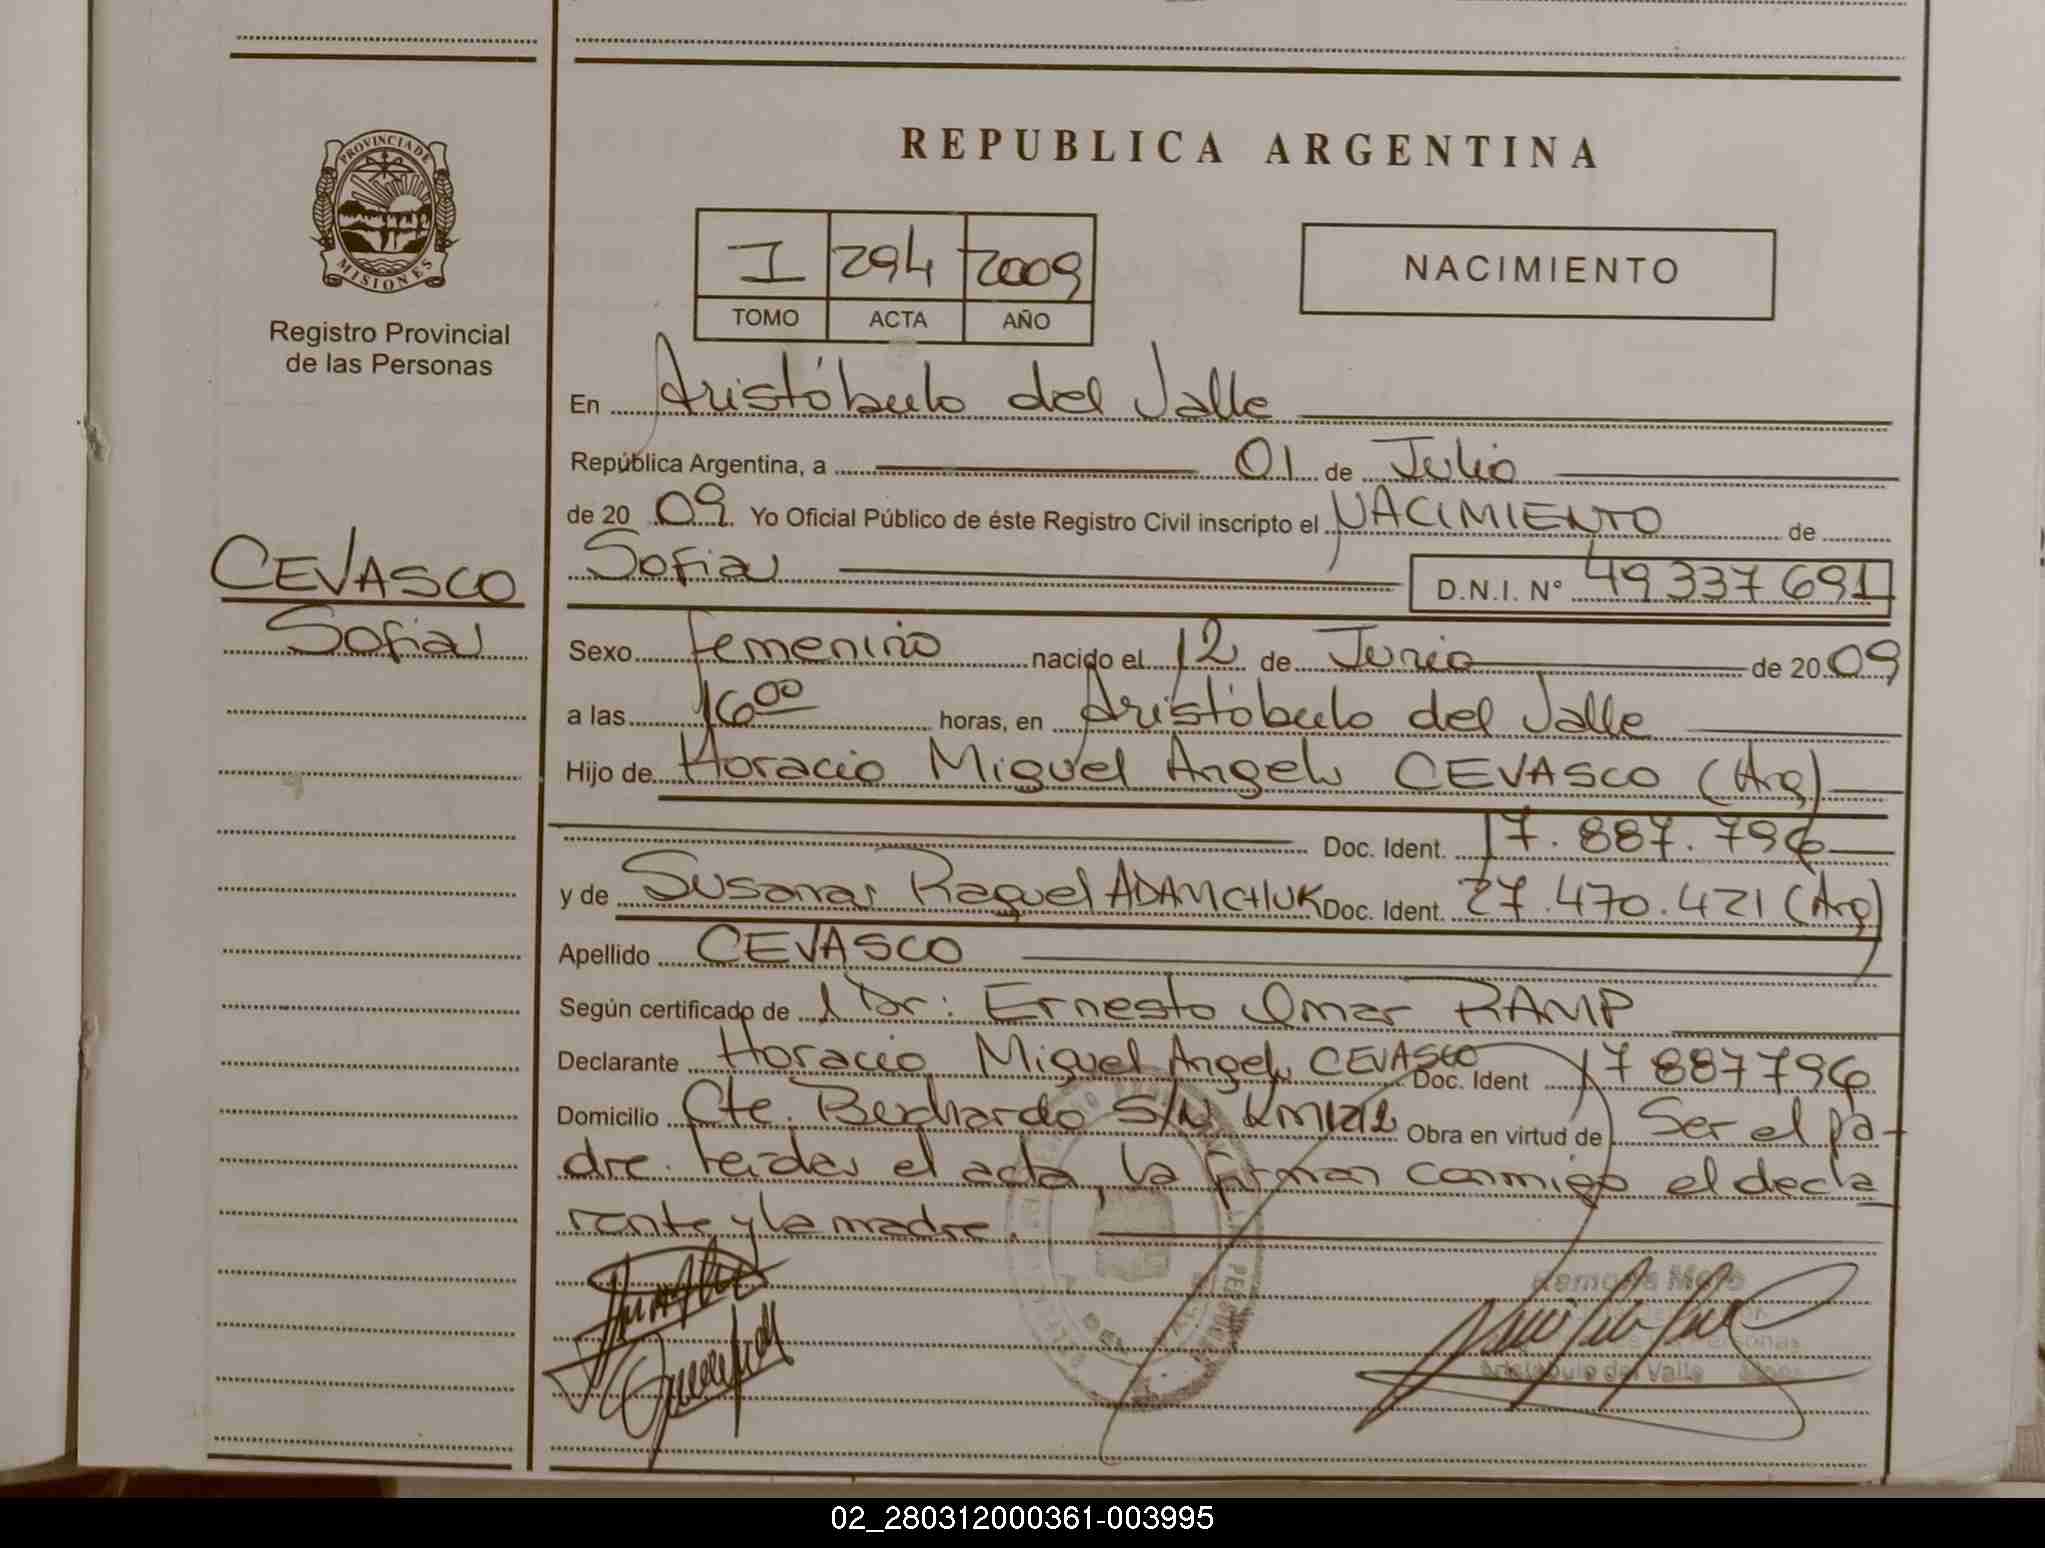 PROVINCIA DE
MISIONES
Registro Provincial
de las Personas
CEVASCO
Sofia
REPUBLICA ARGENTINA
I 294 2009
TOMO ACTA AÑO
NACIMIENTO
En Aristóbulo del Valle
República Argentina, a 01 de Julio
de 20 09. Yo Oficial Público de éste Registro Civil inscripto el NACIMIENTO de
Sofia D.N.I. N° 49337691
Sexo femenino nacido el 12 de Junio de 20 09
a las 16 00 horas, en Aristóbulo del Valle
Hijo de Horacio Miguel Angel CEVASCO (Arg)
Doc. Ident. 17.887.796
y de Susana Raquel ADAMCHUK Doc. Ident. 27.470.421 (Arg)
Apellido CEVASCO
Según certificado de l Dr: Ernesto Omar RAMP
Declarante Horacio Miguel Angel CEVASCO Doc. Ident 17887796
Domicilio Cte. S/N Km Obra en virtud de Ser el pa-
dre. Leida el acta, la firman conmigo el decla
rante y la madre.
Aristobulo del Valle
02_280312000361-003995